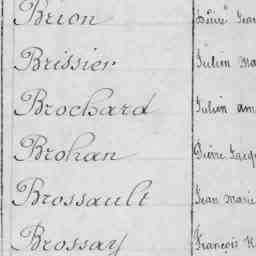 Brion Désiré Jean
Brissier Julien Ma
Brochard Julien am
Brohan Pierre Jacq
Brossault Jean Marie
Brossay François H